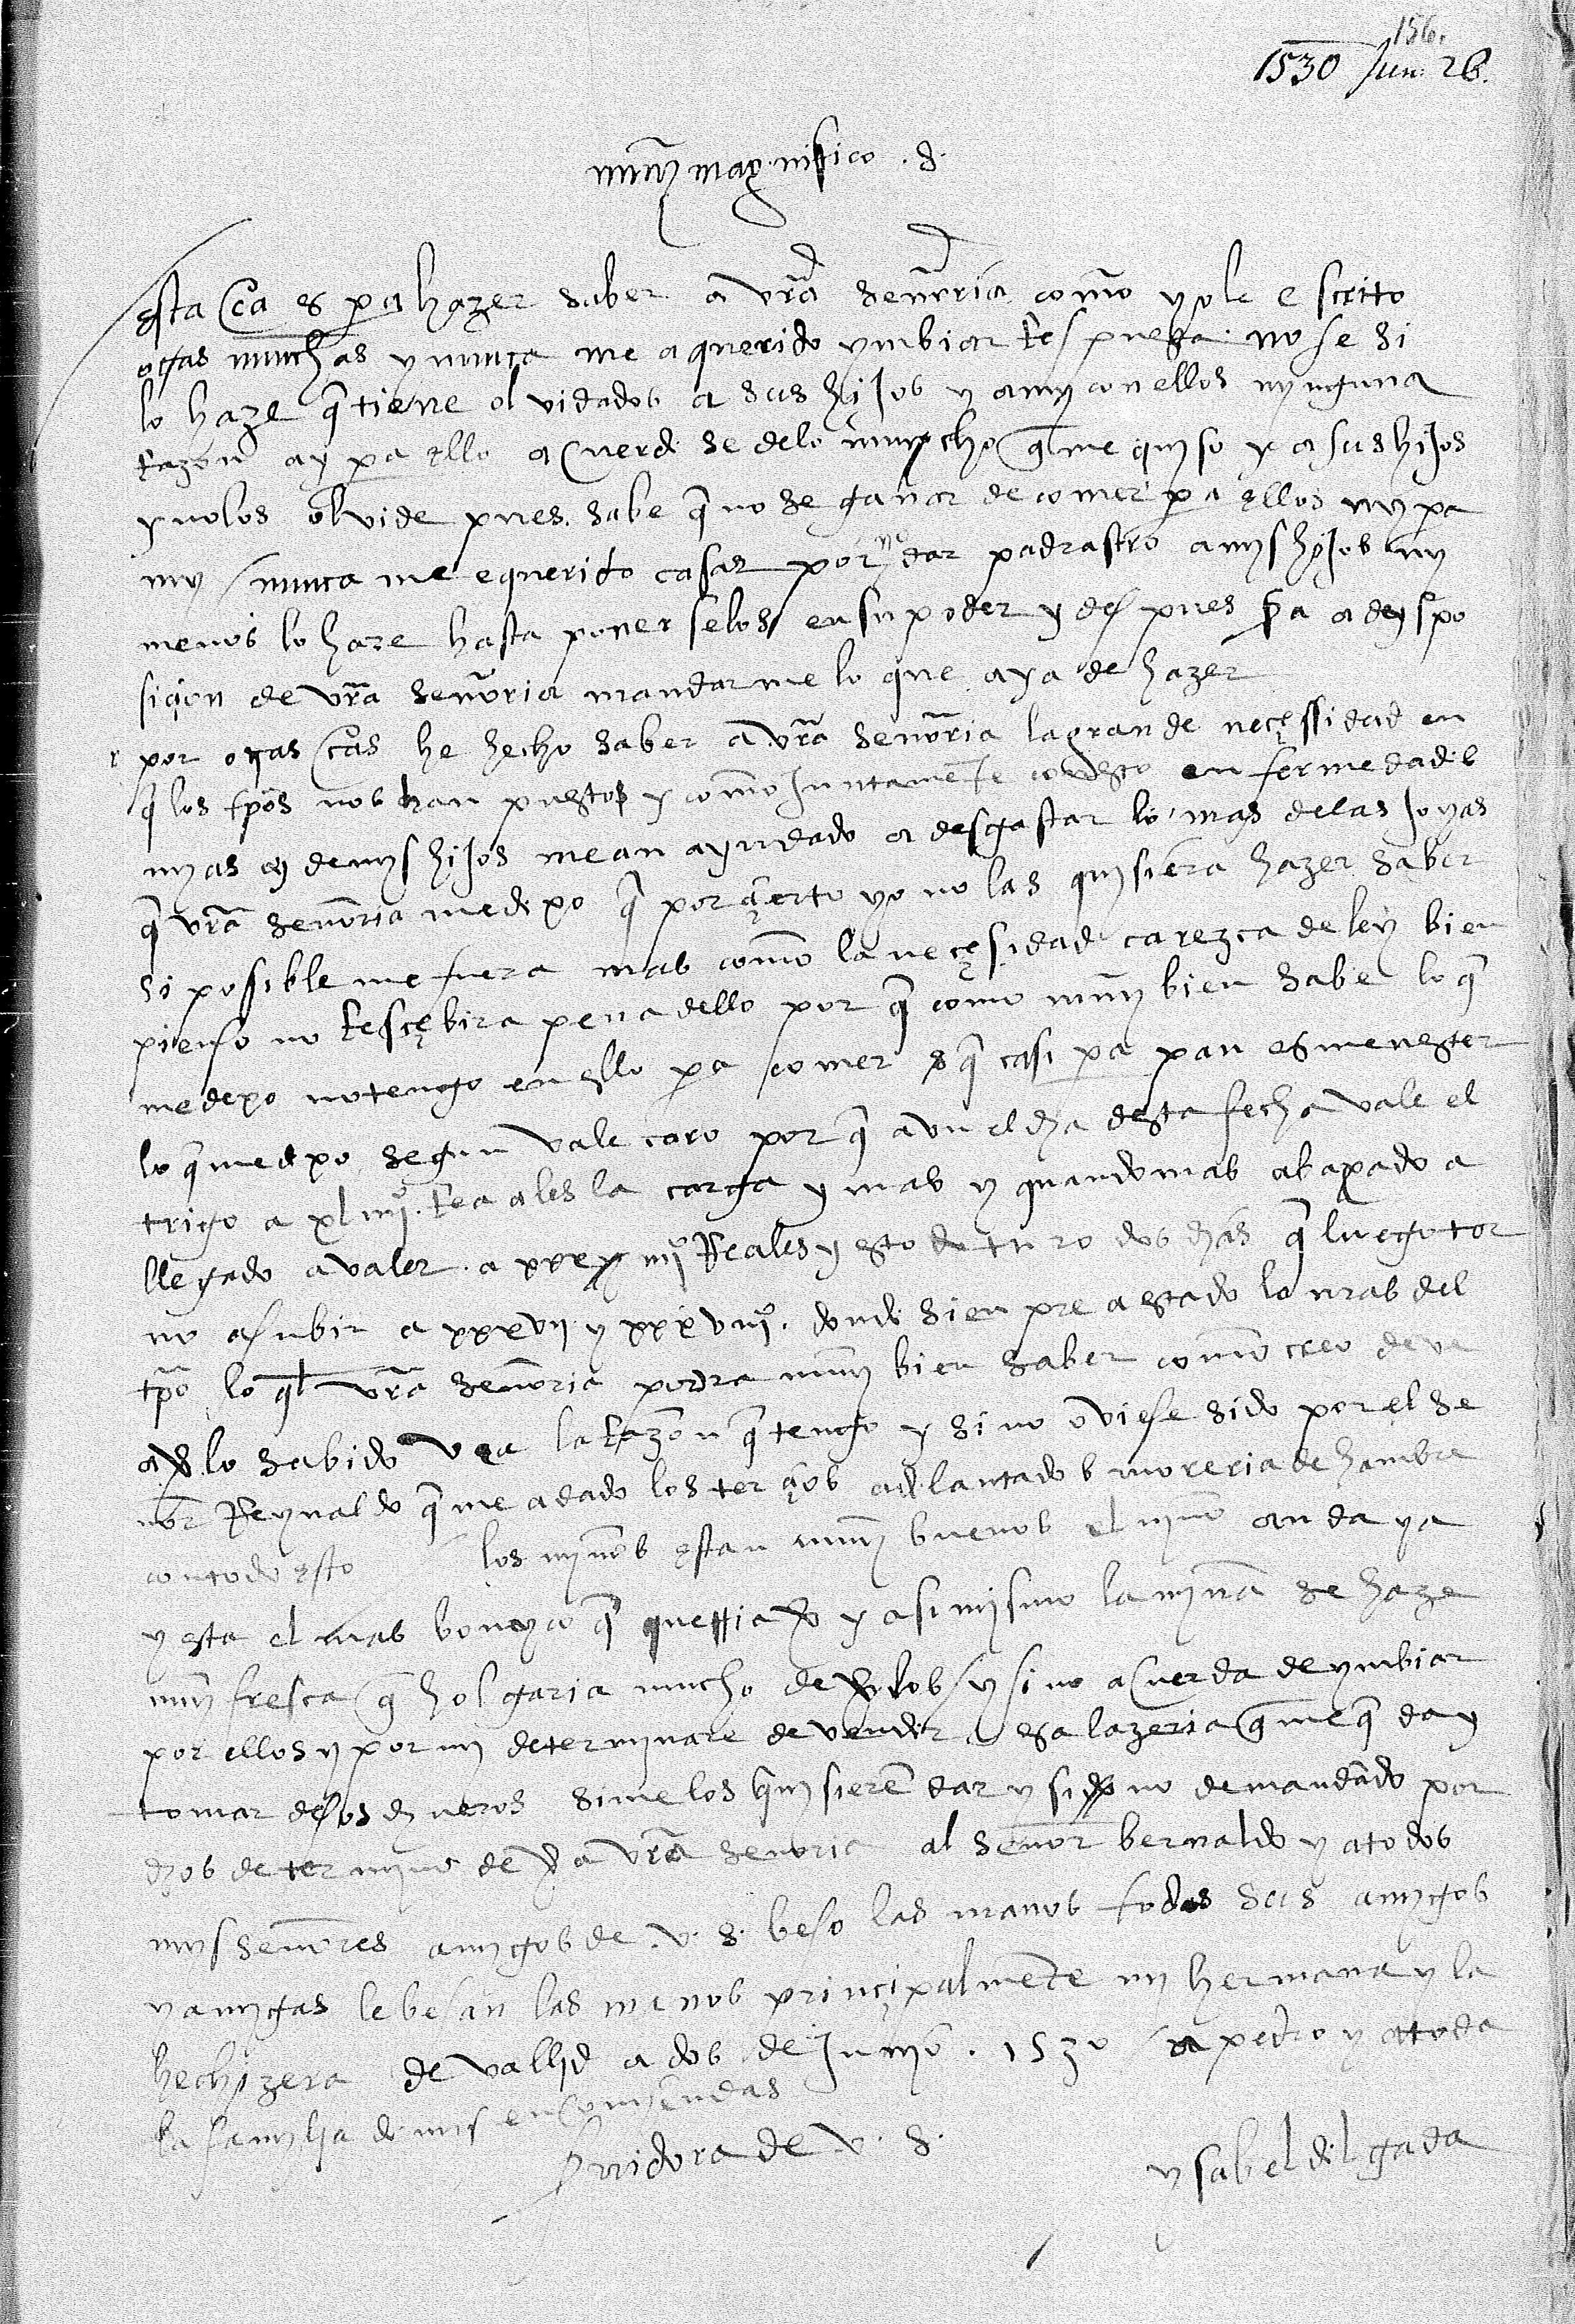 156.
1530 Jun: 26.
muy mag.nifico .s.
esta ca es pa hazer saber a vra señoria como yo le e scrito
otras munchas y nunca me a querido ymbiar respuesta. no se si
lo haze q tiene olvidados a sus hijos y a my con ellos nynguna
razon ay pa ello a cuerde se de lo mucho q me quyso y a sus hijos
y no los olvide pues. sabe q no se ganar de comer pa ellos ny pa
my / nunca me e querido casar por no dar padrastro a mys hijos ny
menos lo hare hasta poner selos en su poder y despues sera a dyspo
siçion de vra señoria mandar me lo que aya de hazer
por otras cas he hecho saber a vra señoria la grande neçessidad en
q los tpos nos han puesto y como juntamente con esto enfermedades
myas y de mys hijos me an ayudado a desgastar lo mas de las joyas
q vra señoria me dexo q por çierto yo no las quysiera hazer saber
si posible me fuera mas como la neçesidad carezca de ley bien
pienso no resçebira pena dello por q como muy bien sabe lo q
me dexo no tengo en ello pa comer q casi pa pan es menester
lo q me dexo segun vale caro por q aun el dia desta fecha vale el
trigo a xl iiijº. reales la carga y mas y quando mas abaxado a
llegado a valer. a xxx iiijº Reales y esto turo dos dias q luego tor
no a subir a xxxvij y xxxviijº. donde sienpre a estado lo mas del
tpo lo ql vra señoria podra muy bien saber como creo deve
averlo sabido vea la razon q tengo y si no oviese sido por el se
nor Reynaldo q me a dado los terçios adelantados moreria de hambre
con todo esto los nynos estan muy buenos el nyno anda ya
y esta el mas bonyco q y asi mysmo la nyna se haze
muy fresca q holgaria mucho de vellos / y si no a cuerda de ymbiar
por ellos y por my determynare de vender esa lazeria q me queda y
tomar desos dineros si me los quysieren dar y si no demandado por
dios determyno de yr a vra senoria al señor bernaldo y a todos
mys señores amygos de .v. s. beso las manos todos sus amygos
y amygas le besan las manos prinçipalmente my hermana y la
hechizera de vallid a dos de Junyo . 1530 a pedro y a toda
la famylia de mis encomiendas
servidora de v. s.
ysabel delgada